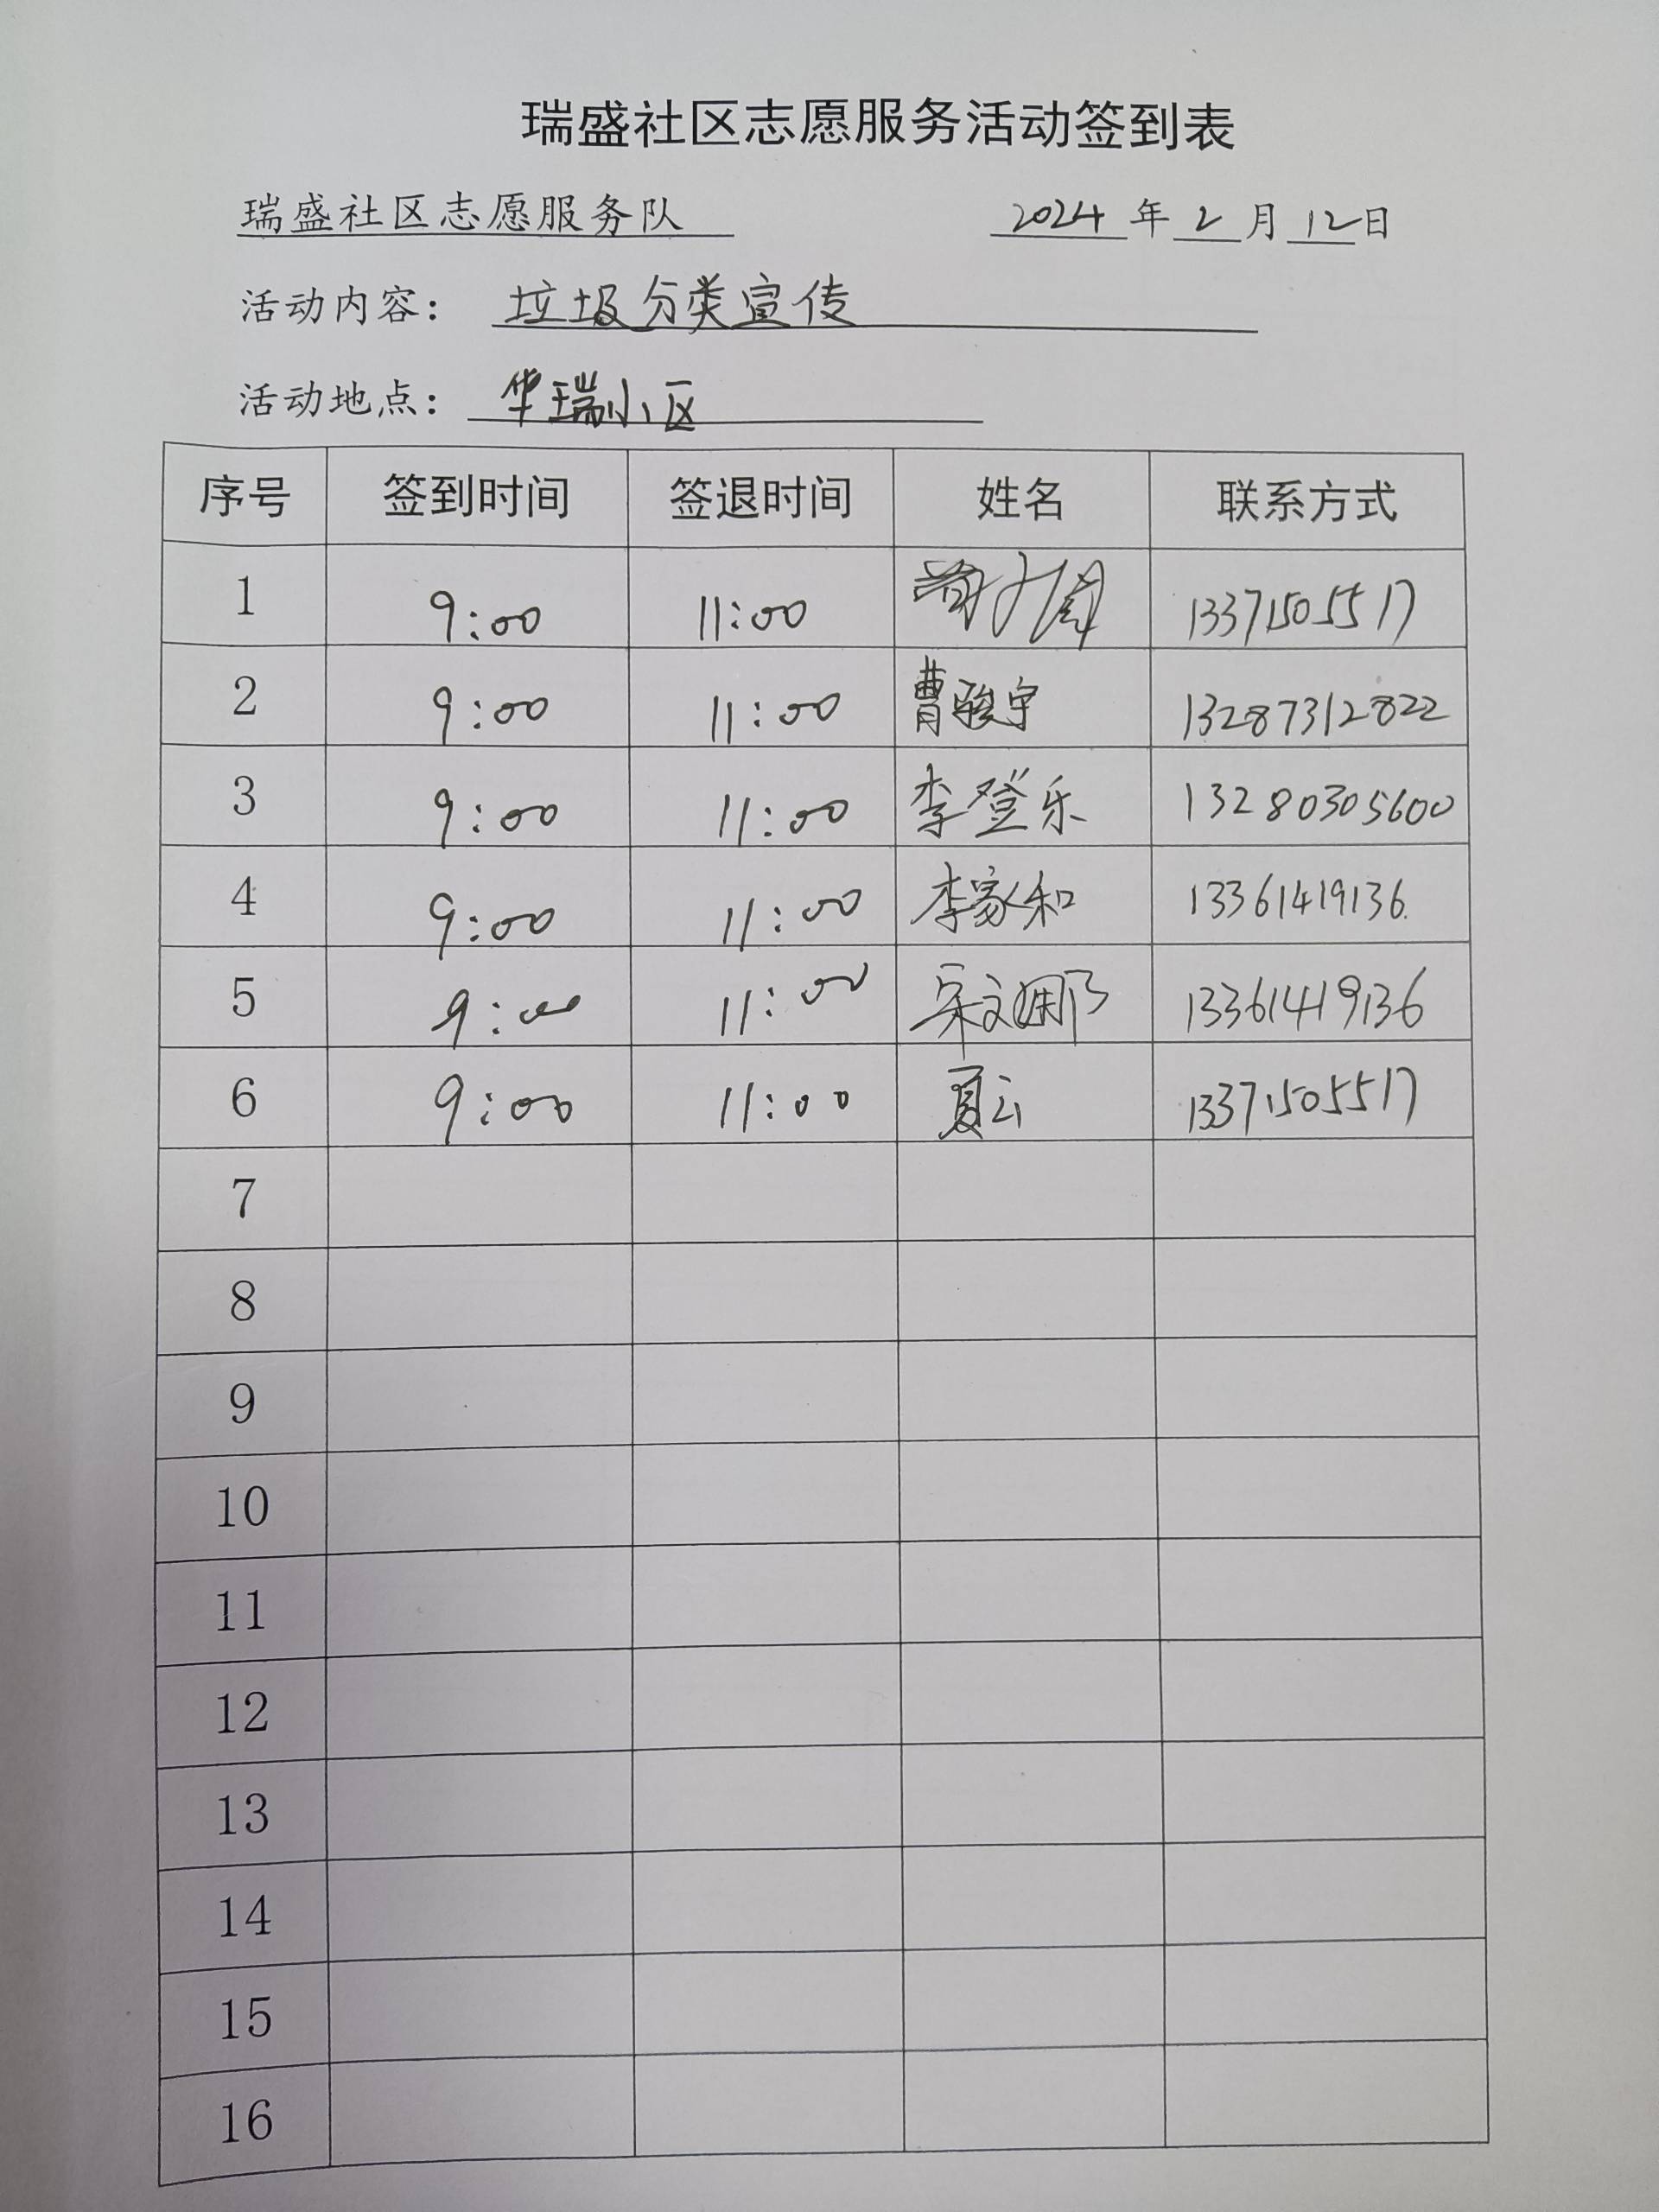 瑞盛社区志愿服务活动签到表
瑞盛社区志愿服务队 2024年2月12日
活动内容：垃圾分类宣传
活动地点：华瑞小区
序号 签到时间 签退时间 姓名 联系方式
1 9:00 11:00 13371505517
2 9:00 11:00 曹骏宇 13287312822
3 9:00 11:00 李登乐 13280305600
4 9:00 11:00 李家和 13361419136
5 9:00 11:00 宋文娜 13361419136
6 9:00 11:00 夏云 13371505517
7
8
9
10
11
12
13
14
15
16